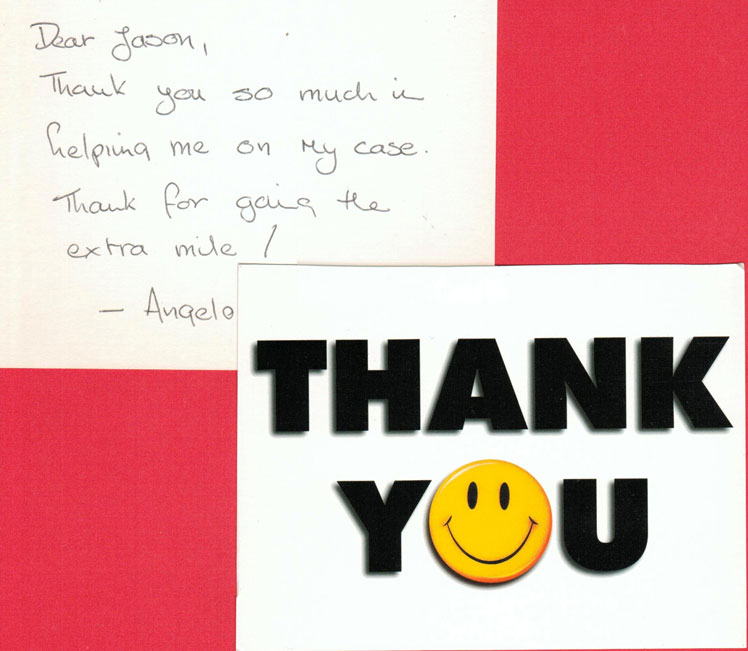 Dear Jason,
Thank you so much in
helping me on my case.
Thank for going the
extra mile!
— Angelo
THANK
YOU